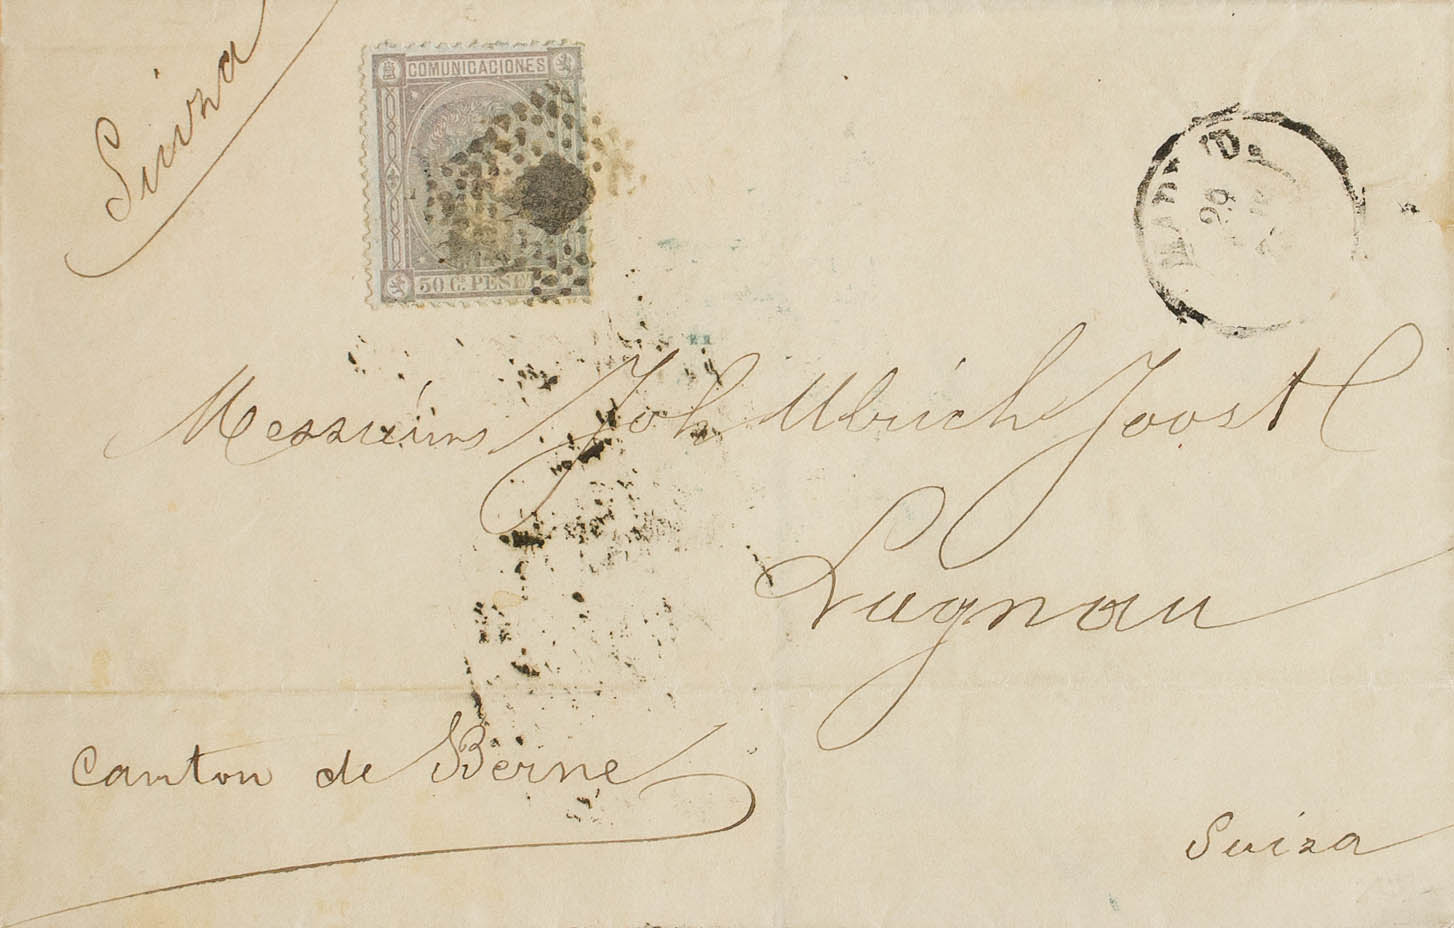 Suiza
COMUNICACIONES
50 C. PESET
MADRID
29
Messieurs Joh Ulrich Joost
Lagnau
Canton de Berne
Suiza